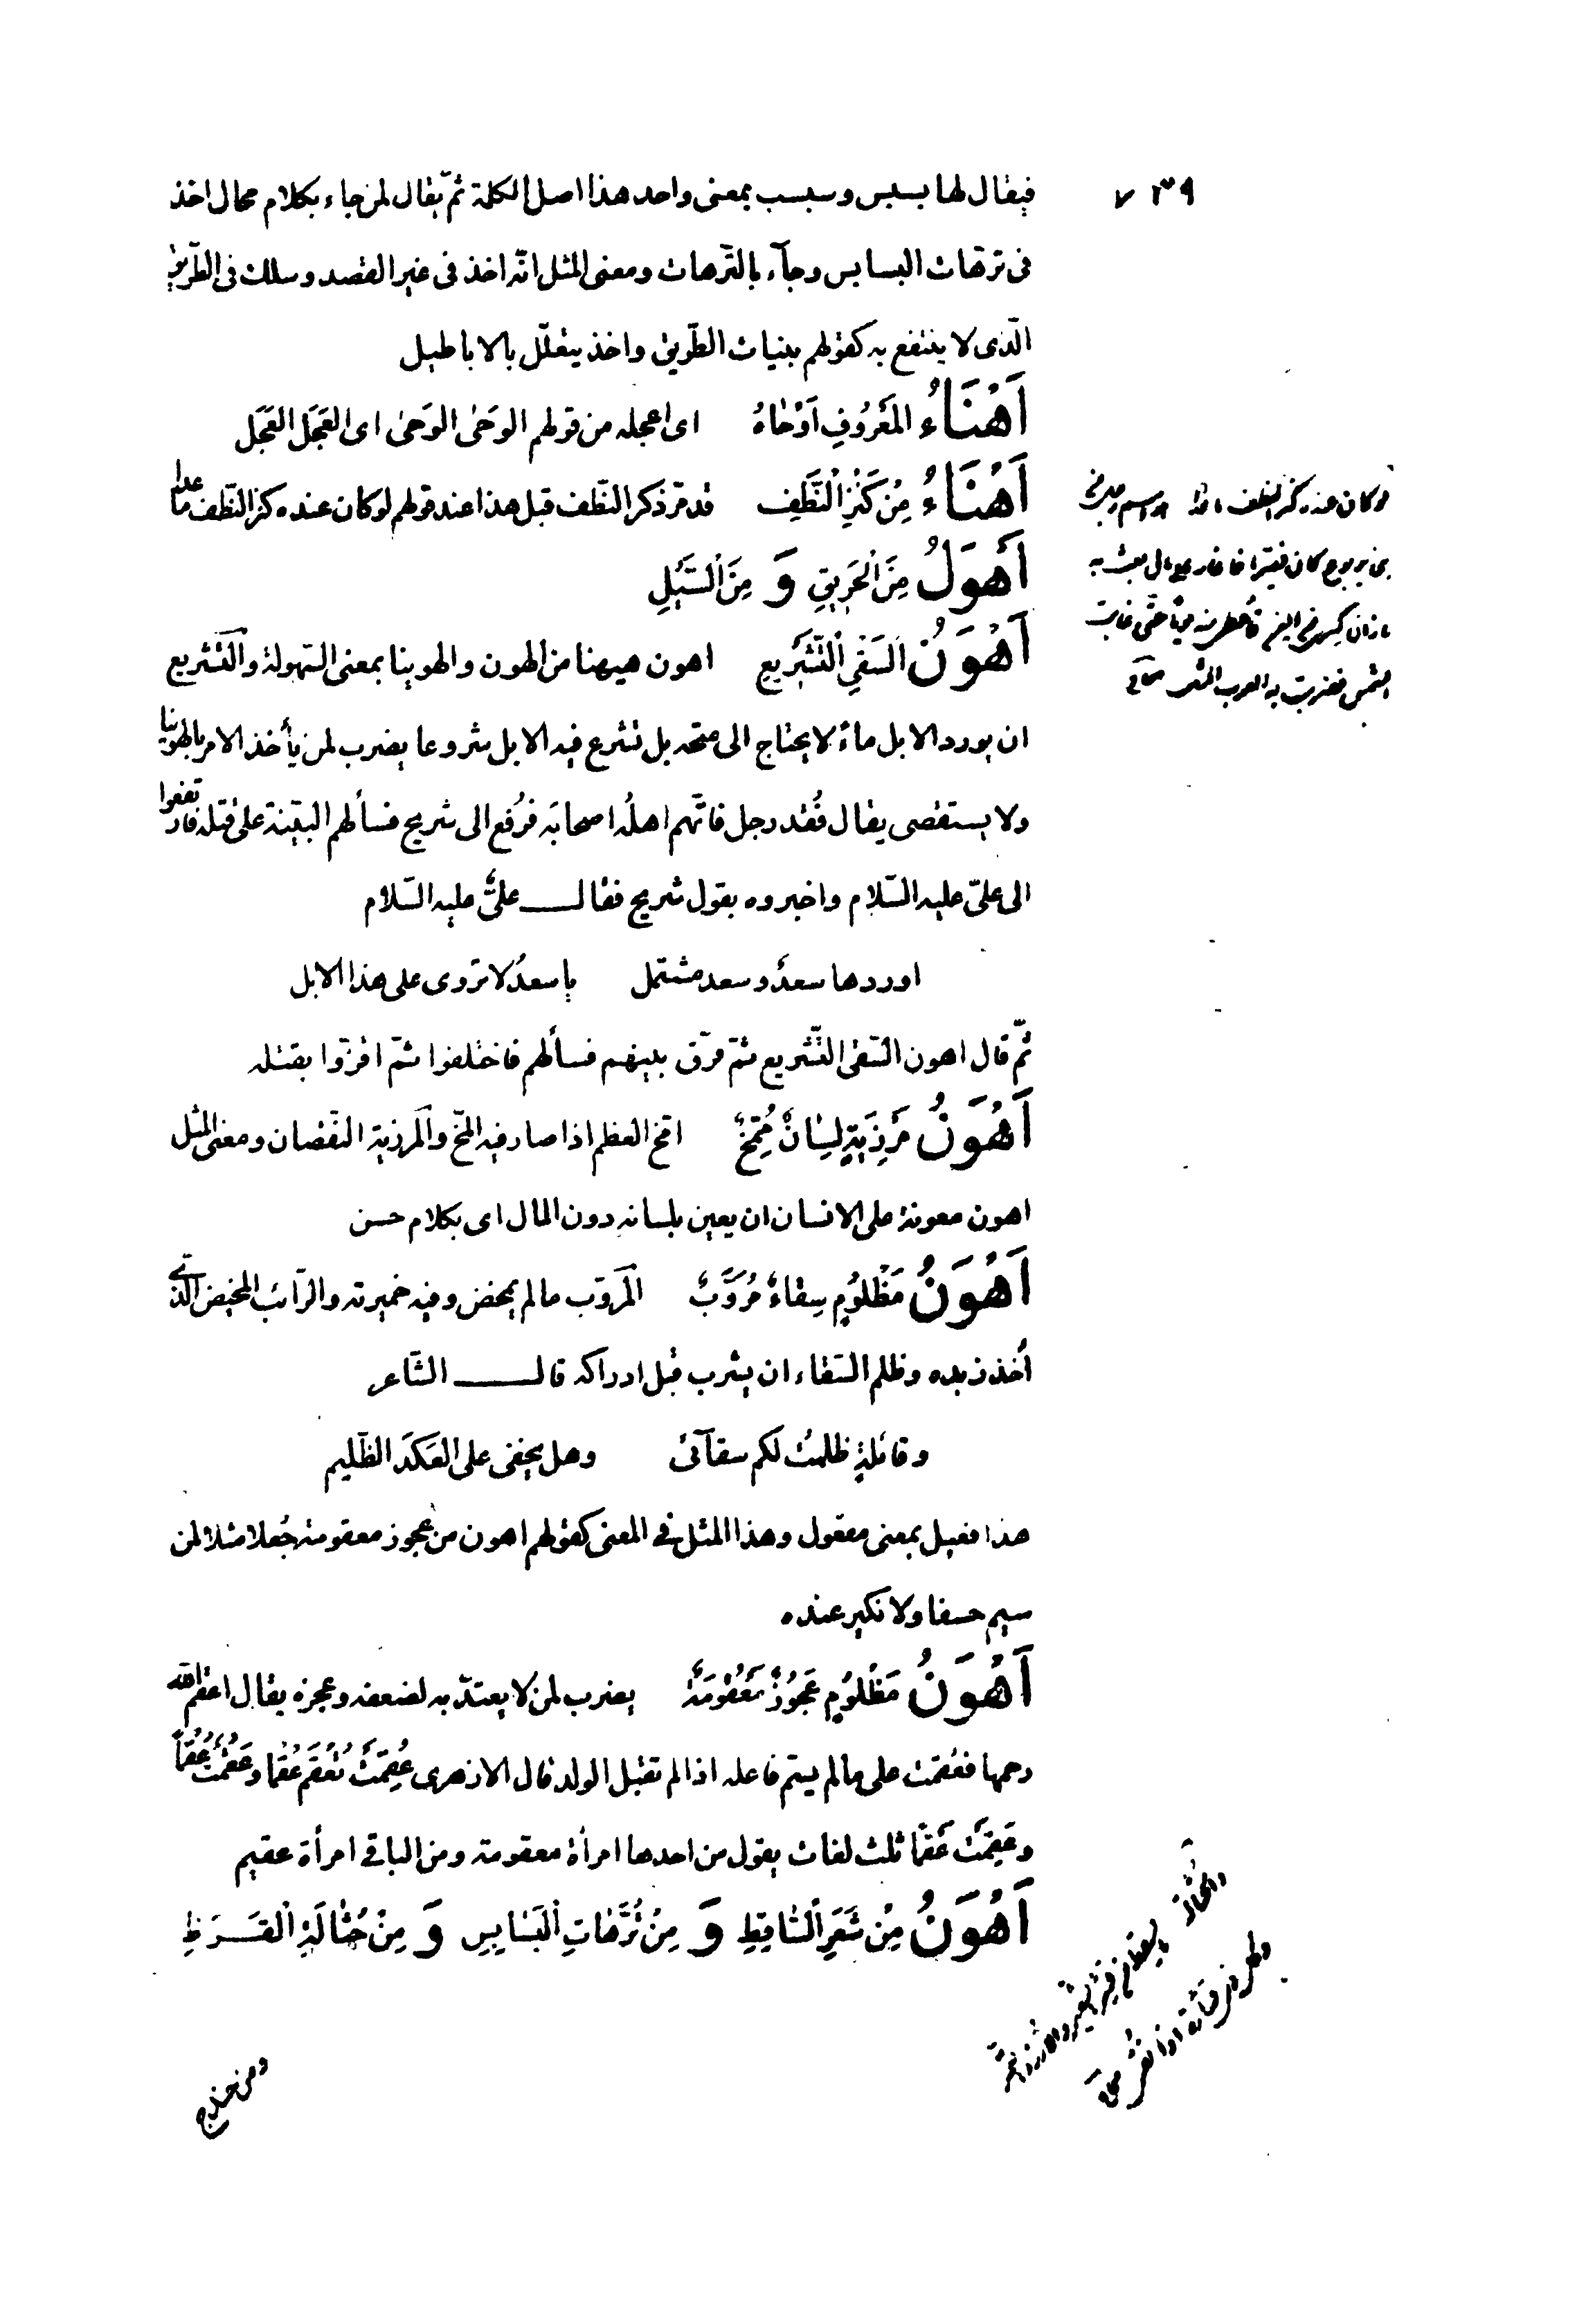 ٧٣٩
فيقال لها بسبس وسبسب بمعنى واحد هذا اصل الكلمة ثمّ يقال لمن جاء بكلام محال اخذ
فى ترهات البسابس وجآء بالتّرهات ومعنى المثل انّه اخذ فى غير القصد وسلك فى الطّريق
الّذى لا ينتفع به كقولهم بنيات الطّريق واخذ يتعلّل بالاباطيل
اَهْنَاءُ المَعْرُوفِ اَوْحَاهُ اى اعجله من قولهم الوَحَى الوَحَى اى العَجَل العَجَل
اَهْنَاءُ مِنْ كَنْزِ النَّطِفِ قد مرّ ذكر النّطف قبل هذا عند قولهم لو كان عنده كنز النّطف ما عدا
اَهْوَلُ مِنَ الْحَرِيقِ وَ مِنَ السَّيْلِ
اَهْوَنُ السَقْيِ التَّشْرِيعِ اهون هيهنا من الهون والهوينا بمعنى السّهولة والتّشريع
ان يورد الابل ماءً لا يحتاج الى متحه بل تشرع فيه الابل شروعا يضرب لمن يأخذ الامر بالهوينا
ولا يستقصى يقال فُقد رجل فاتّهم اهلُه اصحابَه فرُفع الى شريح فسألهم البيّنة على قتله فارتفعوا
الى علىّ عليه السّلام واخبروه بقول شريح فقال علىٌّ عليه السّلام
اوردها سعدٌ وسعد مشتمل ياسعدُ لا تروى على هذا الابل
ثمّ قال اهون السّقى التّشريع ثمّ فرّق بينهم فسألهم فاختلفوا ثمّ اقرّوا بقتله
اَهْوَنُ مَرْزِيَةٍ لِسَانٌ مُمِخٌّ امخ العظم اذا صار فيه المخّ والمرزية النّقصان ومعنى المثل
اهون معونة على الانسان ان يعين بلسانه دون المال اى بكلام حسن
اَهْوَنُ مَظْلُومٍ سِقَاءٌ مُرَوَّبٌ المروّب ما لم يمخض وفيه خميرته والرّائب المخيض الّذى
اُخذ زبده وظلم السّقاء ان يشرب قبل ادراكه قال الشّاعر
وقائلةٍ ظلمتُ لكم سقآئى وهل يخفى على العَكَدَ الظّليم
هذا فعيل بمعنى مفعول وهذا المثل فى المعنى كقولهم اهون من عجوز معقومة جُعلا مثلا لمن
سيم خسفا ولا نكير عنده
اَهْوَنُ مَظْلُومٍ عَجُوزٌ مَعْقُومَةٌ يضرب لمن لا يعتدّ به لضعفه وعجزه يقال اعقم اللّه
رحمها فعُقمت على ما لم يسمّ فاعله اذا لم تقبل الولد قال الازهرى عُقِمَتْ تُعْقَم عُقْما وعَقُمَتْ عُقْماً
وعَقِمَتْ عَقَمًا ثلث لغات يقول من احدها امرأة معقومة ومن الباقى امرأة عقيم
اَهْوَنُ مِنْ شَعَرِ السَّاقِطِ وَ مِنْ تُرَّهَاتِ الْبَسَابِسِ وَ مِنْ حُثَالَةِ الْقَرَظِ
لو كان عنده كنز النطف ما عدا
بنى يربوع كان فقيرا فاغار على مال بعث به
باذان الى كسرى من اليمن فأعطى منه يومًا حتّى غابت
الشمس فضربت به العرب المثل